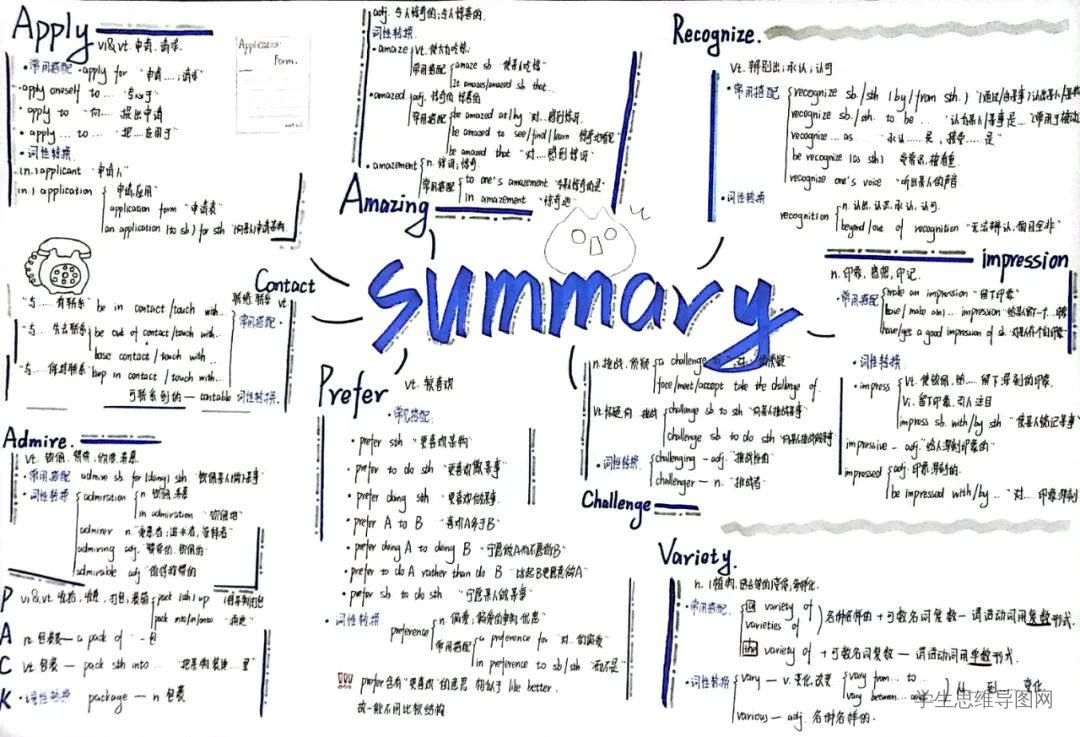 Apply
vi&vt. 申请、请求
·常用搭配·apply for "申请……;请求"
·apply oneself to … "专心于"
·apply to "向……提出申请
·apply … to … "把……应用于"
·词性转换·
(n.) applicant "申请人"
(n.) application 申请、应用
application form "申请表"
an application (to sb) for sth (向某人)申请某物
Application
Form.
adj. 令人惊奇的;令人惊喜的.
词性转换
·amaze vt. 使大为吃惊
常用搭配 amaze sb "使某人吃惊"
It amazes/amazed sb that …
·amazed adj. 惊奇的 惊喜的
常用搭配 be amazed at/by "对…感到惊讶
be amazed to see/find/learn 惊奇地看到
be amazed that "对…感到惊讶"
·amazement n. 惊讶;惊奇
常用搭配 to one's amazement "令某人惊奇的是"
in amazement "惊奇地"
Amazing
Recognize.
vt. 辨别出;承认;认可
·常用搭配 recognize sb./sth (by/from sth.)
recognize sb./sth. to be … "认为某人/某事是…"
recognize … as … "承认……是,接受……是
be recognize (as sth)
recognize one's voice "听出某人的声音
·词性转换
recognition n. 认出、认识、承认、认可.
beyond/out of recognition "无法辨认、面目全非"
Contact
联络、联系 vt.
常用搭配·
"与……有联系" be in contact/touch with…
"与…失去联系 be out of contact/touch with…
lose contact/touch with …
"与……保持联系 keep in contact/touch with…
可联系到的 — contable 词性转换.
summary
impression
n. 印象、感想、印记.
·常用搭配 make an impression "留下印象"
have/make a(n) … impression
have/get a good impression of sb.
·词性转换
·impress vt. 使钦佩、给…留下深刻的印象.
vi. 留下印象、引人注目
impress sb. with/by sth "使某人铭记某事"
impressive – adj. "给人深刻印象的"
impressed adj. 印象深刻的.
be impressed with/by … "对…印象深刻
Prefer
vt. 较喜欢
·常见搭配.
·prefer sth "更喜欢某物
·prefer to do sth "更喜欢做某事"
·prefer doing sth "更喜欢做某事
·prefer A to B "喜欢A多于B"
·prefer doing A to doing B "宁愿做A而不愿做B"
·prefer to do A rather than do B "比起B更愿意做A"
·prefer sb to do sth "宁愿某人做某事"
·词性转换
preference n. 偏爱;偏爱的事物、优惠
常用搭配 a preference for "对…的偏爱
in preference to sb/sth "而不是"
!!! prefer含有"更喜欢"的意思,相当于 like better.
故一般不用比较结构
n. 挑战、质疑 a challenge to "对…的质疑"
face/meet/accept take the challenge of.
vt. 怀疑 向…挑战 challenge sb to sth "向某人挑战某事"
challenge sb to do sth "向某人挑战做某事
·词性转换 challenging – adj. "挑战性的"
challenger – n. "挑战者"
Challenge
Admire.
vt. 钦佩、赞赏、欣赏、羡慕
·常用搭配 admire sb for (doing) sth "钦佩某人(做)某事
·词性转换 admiration n 钦佩、羡慕
in admiration "钦佩地"
admirer n. "爱慕者;追求者,崇拜者"
admiring adj. "赞赏的、钦佩的"
admirable adj "值得称赞的
PACK
vi&vt. 收拾,包装 pack (sth) up
pack into/in/onto
n. 包裹 — a pack of "一包
vt. 包装 — pack sth into … "把某物装进…里"
·词性转换 package — n 包裹
Variety.
·常用搭配. a variety of
varieties of
各种各样的 + 可数名词复数 — 谓语动词用复数形式.
the variety of + 可数名词复数 — 谓语动词用单数形式.
·词性转换 vary — v. 变化、改变 vary from … to …
vary between … and …
从…到…变化
various — adj. 各种各样的.
学生思维导图网